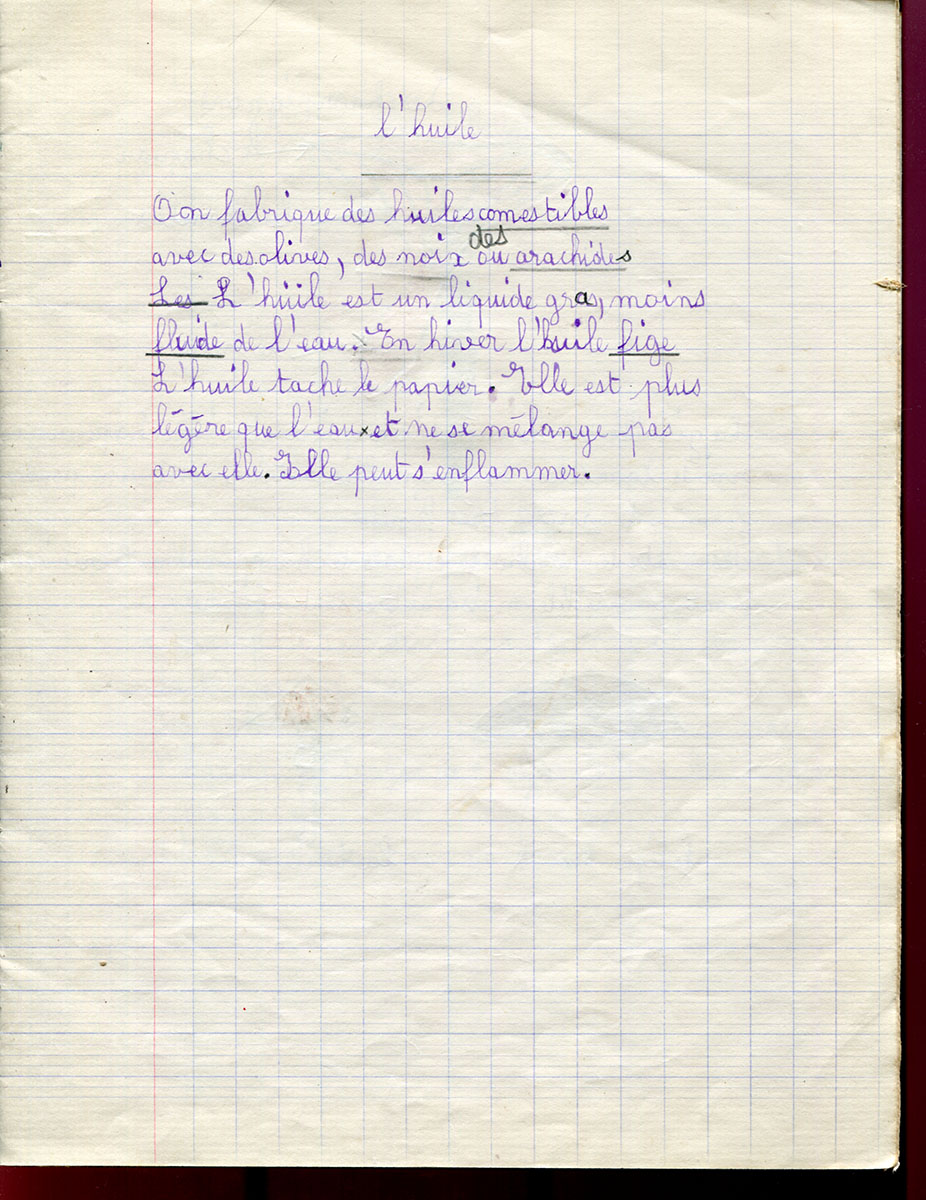 l'huile
Oon fabrique des huiles comestibles
avec des olives, des noix ou des arachides
Les L'hüile est un liquide gras, moins
fluide de l'eau. En hiver l'huile fige
L'huile tache le papier. Elle est plus
légère que l'eau et ne se mélange pas
avec elle. Elle peut s'enflammer.